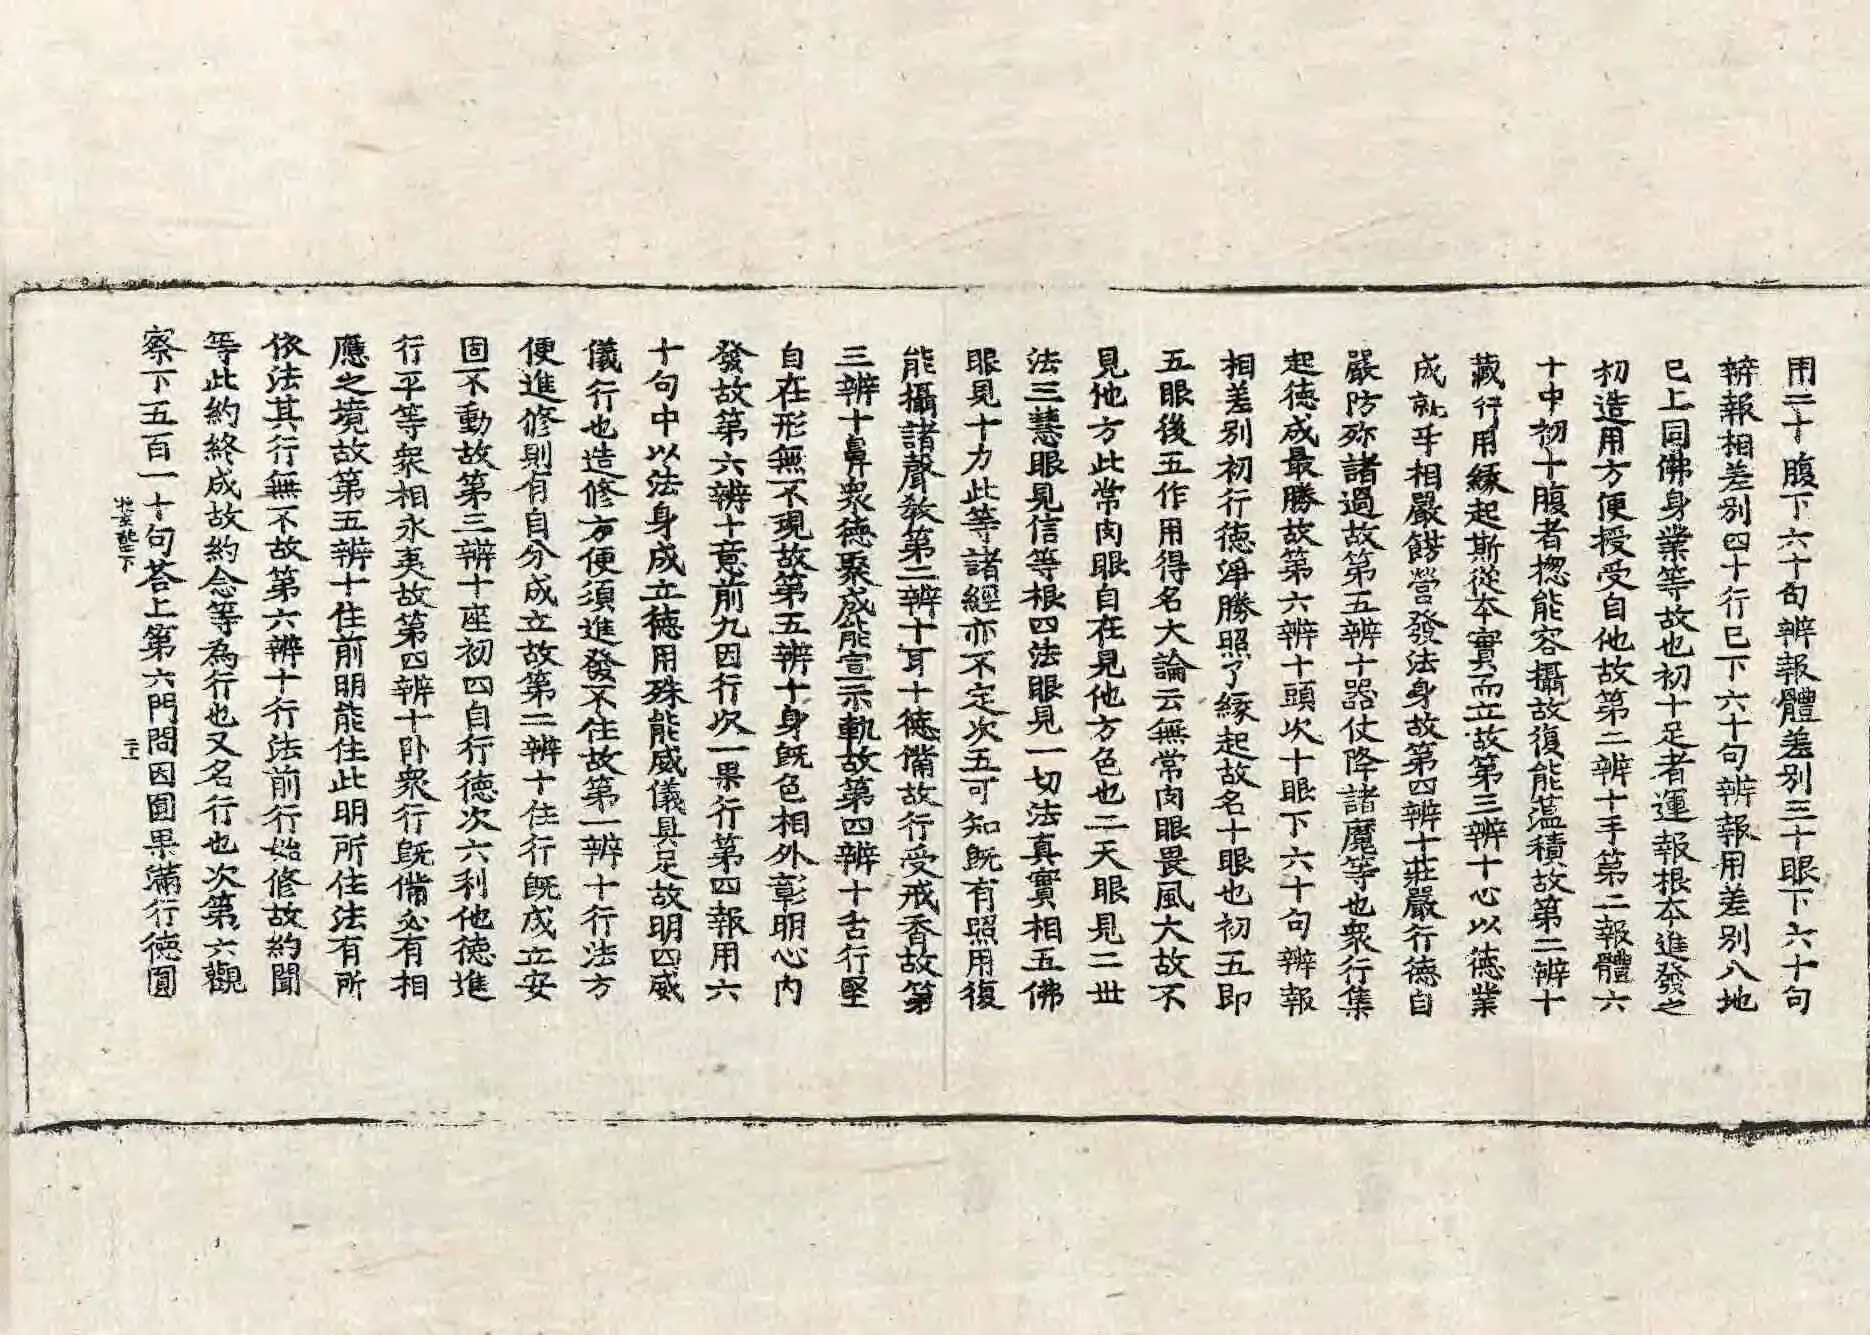 用二十腹下六十句辨報體差別三十眼下六十句
辨報相差別四十行已下六十句辨報用差別八地
已上同佛身業等故也初十足者運報根本進發之
初造用方便授受自他故第二辨十手第二報體六
十中初十腹者揔能容攝故復能蕰積故第二辨十
藏行用緣起斯從本實而立故第三辨十心以德業
成就乎相嚴餝營發法身故第四辨十莊嚴行德自
嚴防殄諸過故第五辨十器仗降諸魔等也衆行集
起德成最勝故第六辨十頭次十眼下六十句辨報
相差別初行德淨勝照了緣起故名十眼也初五即
五眼後五作用得名大論云無常肉眼畏風大故不
見他方此常肉眼自在見他方色也二天眼見二世
法三慧眼見信等根四法眼見一切法真實相五佛
眼見十力此等諸經亦不定次五可知旣有照用復
能攝諸聲敎第二辨十耳十德備故行受戒香故第
三辨十鼻衆德聚成能宣示軌故第四辨十舌行堅
自在形無不現故第五辨十身旣色相外彰明心內
發故第六辨十意前九因行次一果行第四報用六
十句中以法身成立德用殊能威儀具足故明四威
儀行也造修方便須進發不住故第一辨十行法方
便進修則有自分成立故第二辨十住行旣成立安
固不動故第三辨十座初四自行德次六利他德進
行平等衆相永夷故第四辨十卧衆行旣備必有相
應之境故第五辨十住前明能住此明所住法有所
依法其行無不故第六辨十行法前行始修故約聞
等此約終成故約念等為行也又名行也次第六觀
察下五百一十句荅上第六門問因圓果滿行德圓